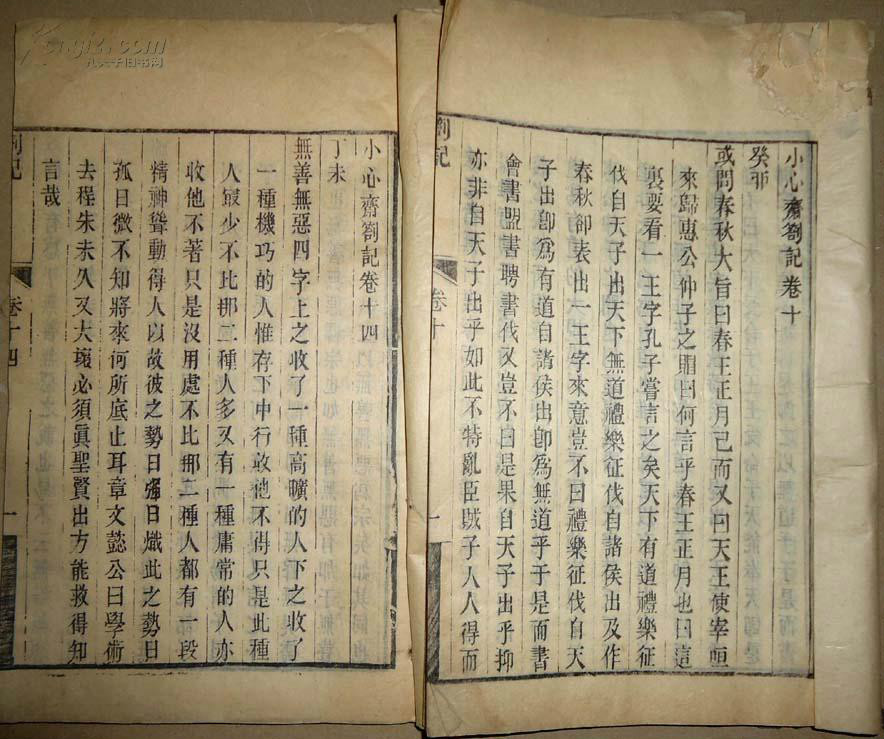 小心齋劄記卷十
癸卯
或問春秋大旨曰春王正月已而又曰天王使宰咺
來歸惠公仲子之賵曰何言乎春王正月也曰這
裏要看一王字孔子嘗言之矣天下有道禮樂征
伐自天子出天下無道禮樂征伐自諸侯出及作
春秋卻表出一王字來意豈不曰禮樂征伐自天
子出卽爲有道自諸侯出卽爲無道乎于是而書
會書盟書聘書伐又豈不曰是果自天子出乎抑
亦非自天子出乎如此不特亂臣賊子人人得而
劄記
卷十
一
小心齋劄記卷十四
丁未
無善無惡四字上之收了一種高曠的人下之收了
一種機巧的人惟存下中行敢他不得只是此種
人最少不比那二種人多又有一種庸常的人亦
收他不著只是沒用處不比那二種人都有一段
精神聳動得人以故彼之勢日彊日熾此之勢日
孤日微不知將來何所底止耳章文懿公曰學術
去程朱未久又大壞必須眞聖賢出方能救得知
言哉
劄記
卷十四
一
Kongfz.com
孔夫子旧书网